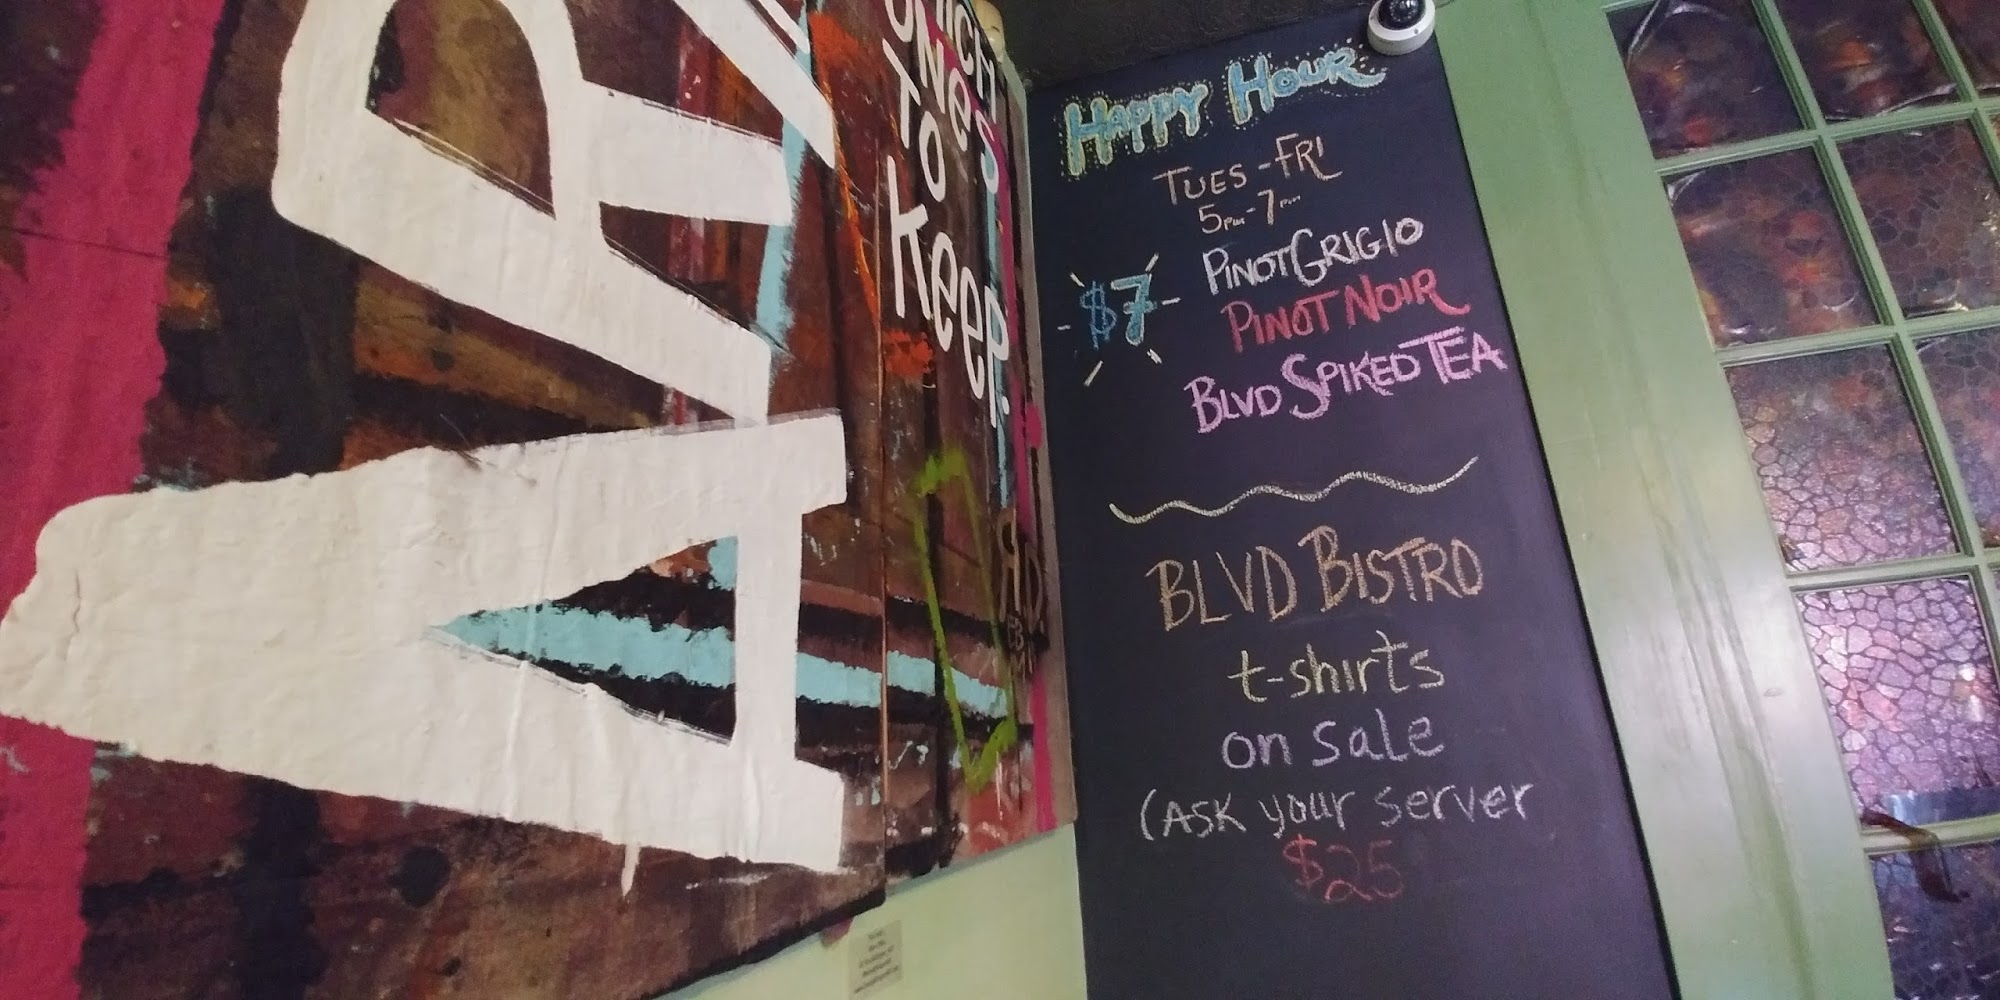 ONES
TO
Keep.
HAPPY HOUR
TUES-FRI
5pm-7pm
$7
PINOT GRIGIO
PINOT NOIR
BLVD SPIKED TEA
BLVD BISTRO
t-shirts
on sale
(ASK your server
$25